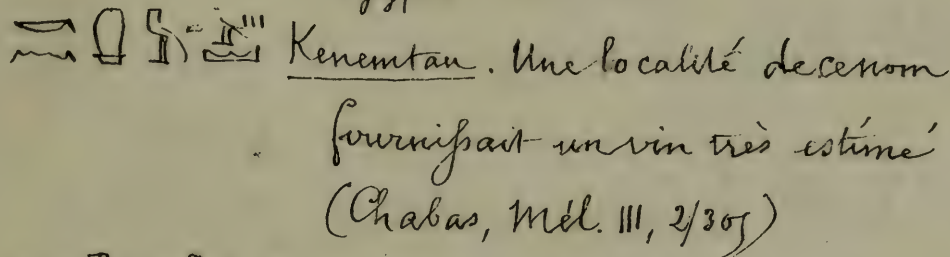 Kenemtau. Une localité de ce nom
fournissait un vin très estimé
(Chabas, Mél. III, 2/305)